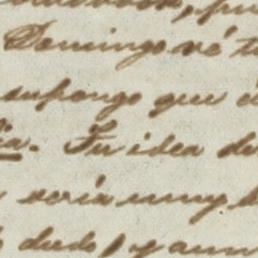 Domingo vé t
supongo que é
ia. Tu idea de
sería muy b
dudo, y aun